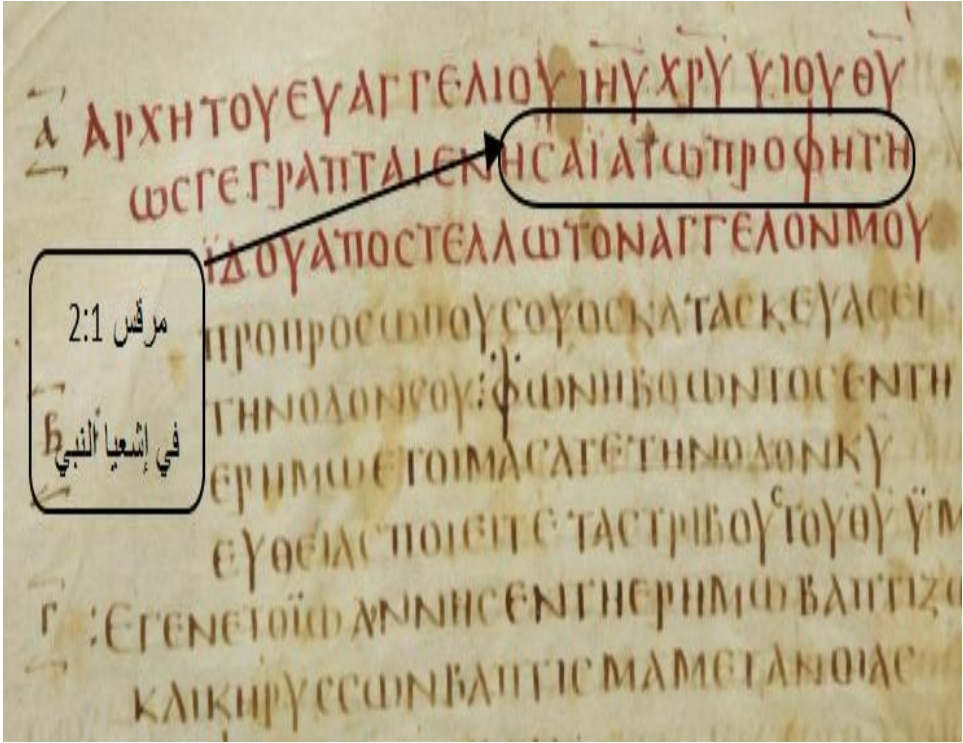 Α ΑΡΧΗΤΟΥΕΥΑΓΓΕΛΙΟΥ ΙΗΥ ΧΡΥ ΥΙΟΥ ΘΥ
ΩϹΓΕΓΡΑΠΤΑΙΕΝΗϹΑΪΑΤΩΠΡΟΦΗΤΗ
ΪΔΟΥΑΠΟϹΤΕΛΛΩΤΟΝΑΓΓΕΛΟΝΜΟΥ
ΠΡΟΠΡΟϹΩΠΟΥϹΟΥΟϹΚΑΤΑϹΚΕΥΑϹΕΙ
Β ΤΗΝΟΔΟΝϹΟΥ:ΦΩΝΗΒΟΩΝΤΟϹΕΝΤΗ
ΕΡΗΜΩΕΤΟΙΜΑϹΑΤΕΤΗΝΟΔΟΝΚΥ
ΕΥΘΕΙΑϹΠΟΙΕΙΤΕΤΑϹΤΡΙΒΟΥϹΤΟΥΘΥΫΜ
Γ :ΕΓΕΝΕΤΟΪΩΑΝΝΗϹΕΝΤΗΕΡΗΜΩΒΑΠΤΙΖΩ
ΚΑΙΚΗΡΥϹϹΩΝΒΑΠΤΙϹΜΑΜΕΤΑΝΟΙΑϹ
مرقس 2:1
في إشعيا النبي